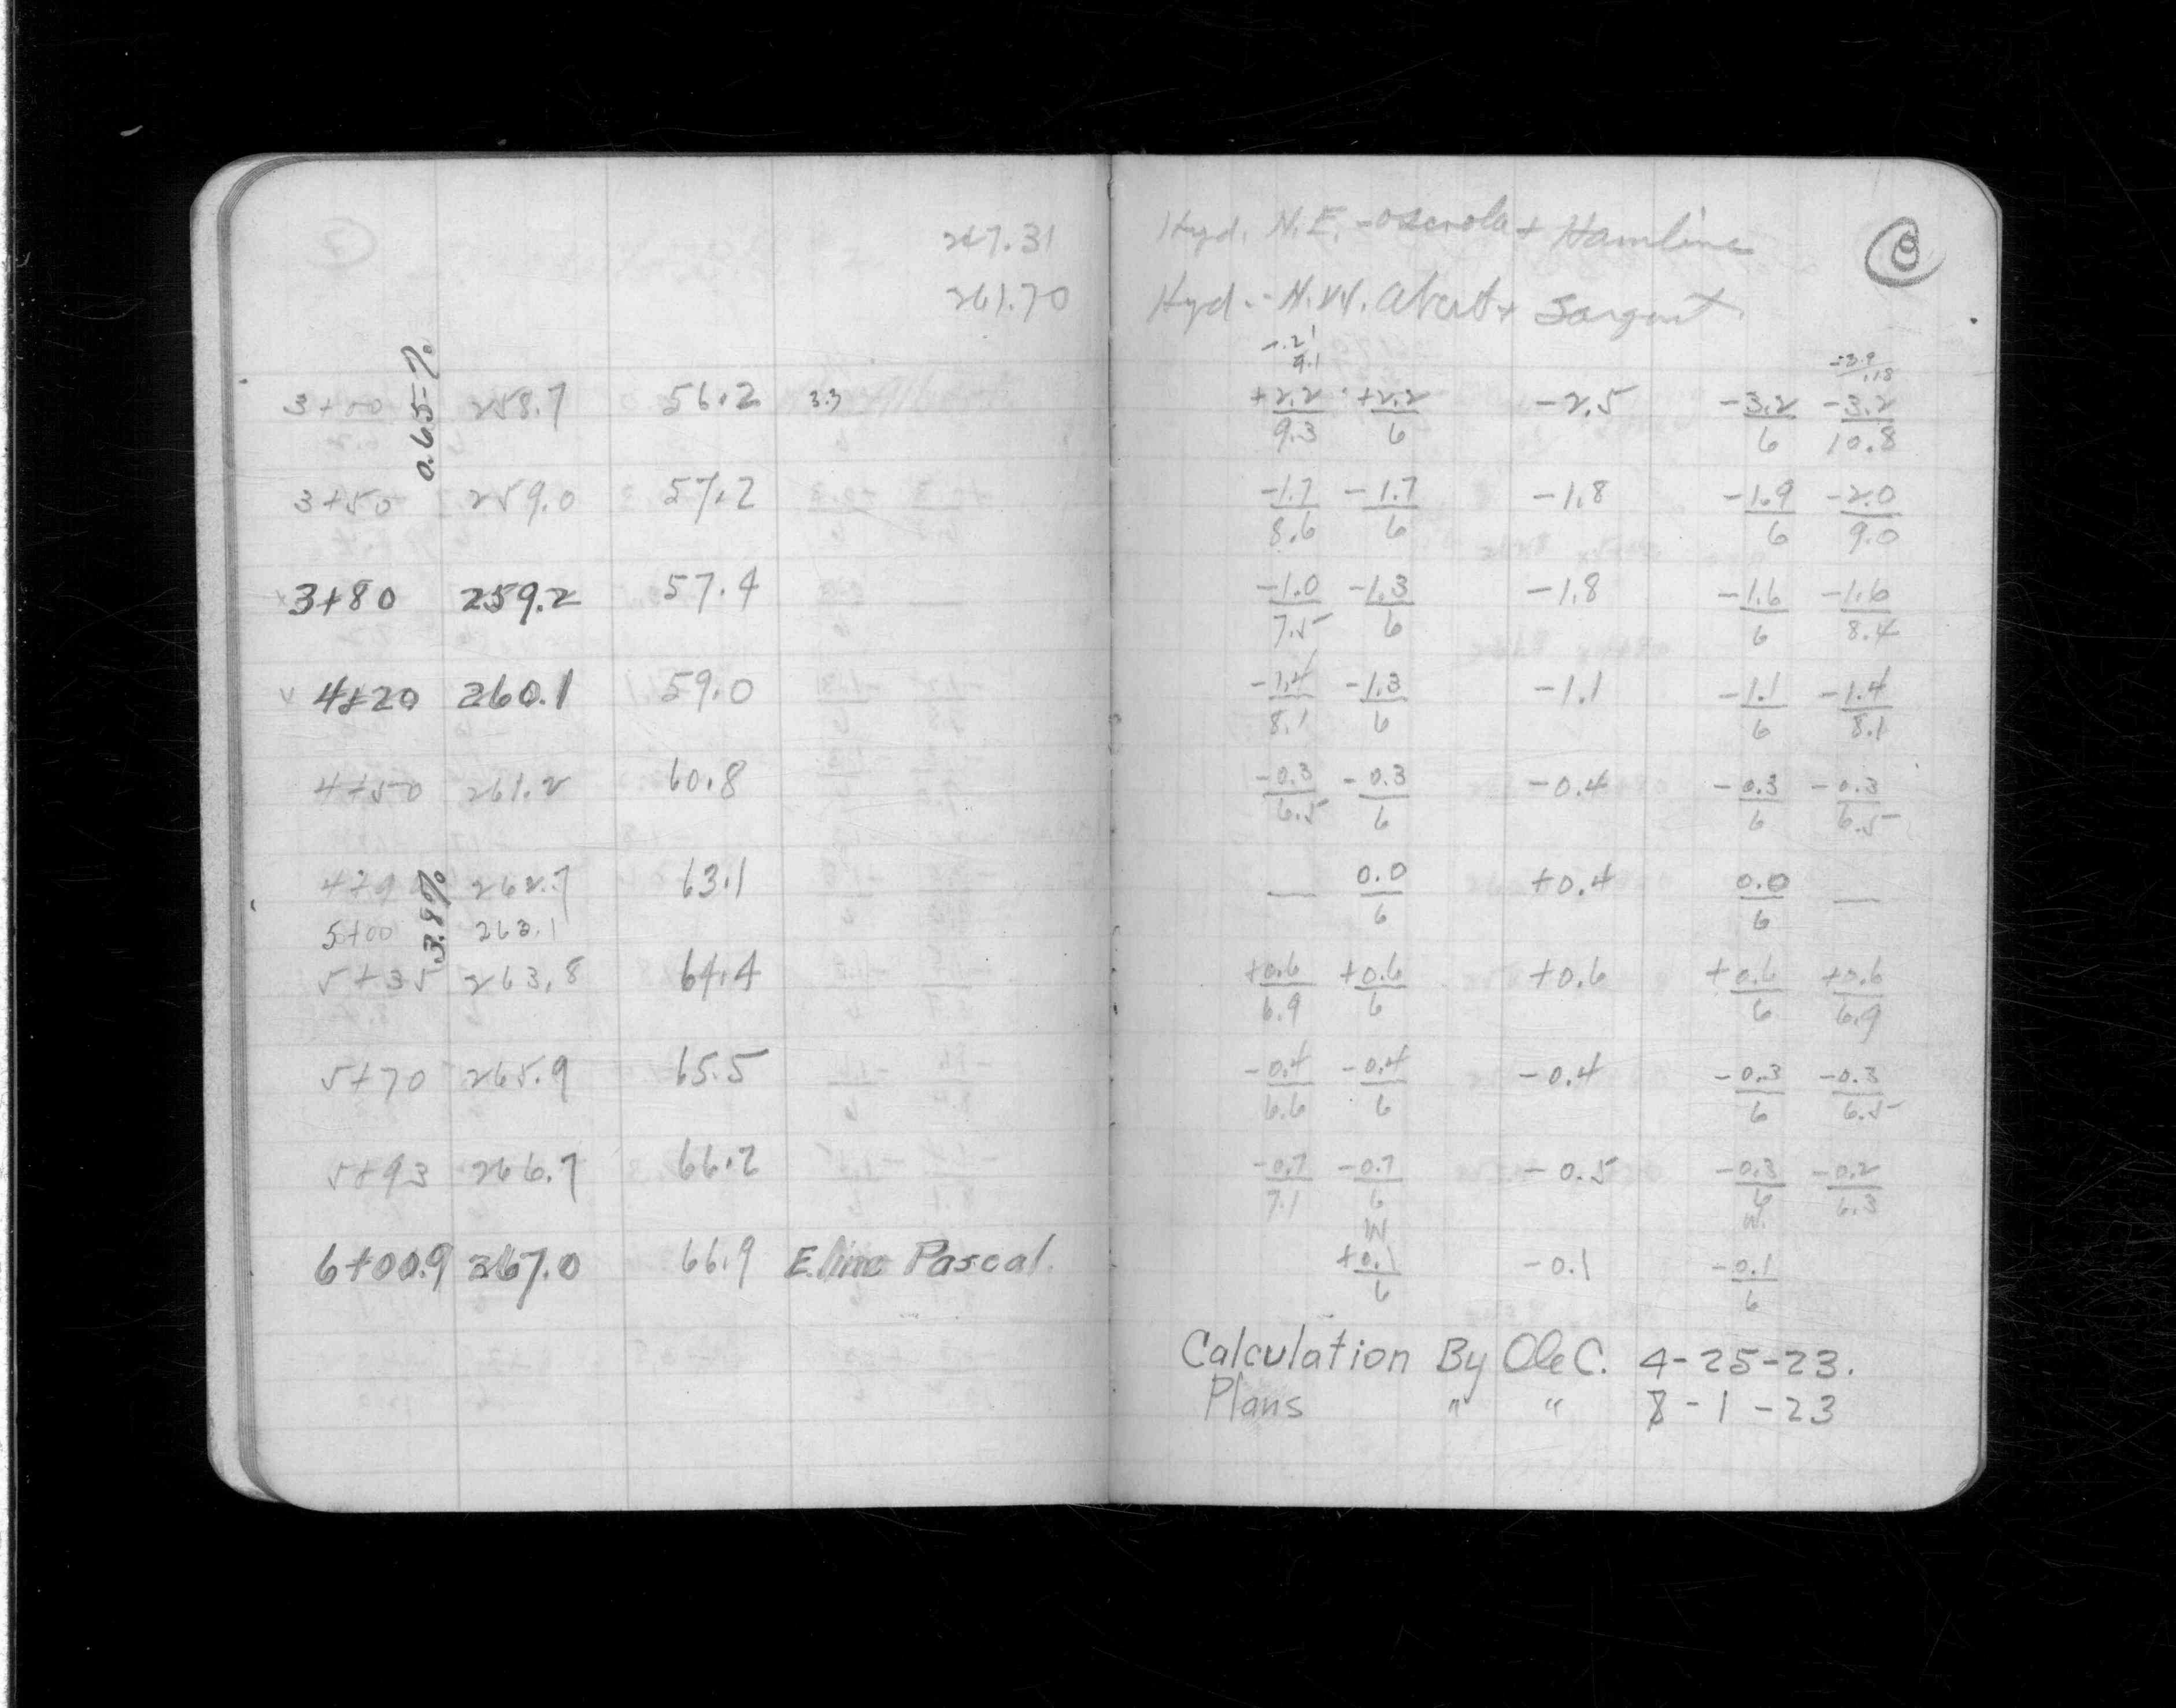 247.31 Hyd. N.E. - Osceola + Hamline 8
261.70 Hyd. - N.W. Albert + Sargent
0.65% -3.9
9.1 11.8
3+00 258.7 56.2 3.3 +2.2 +2.2 -2.5 -3.2 -3.2
9.3 6 6 10.8
3+50 259.0 57.2 -1.7 -1.7 -1.8 -1.9 -2.0
8.6 6 6 9.0
3+80 259.2 57.4 -1.0 -1.3 -1.8 -1.6 -1.6
7.5 6 6 8.4
4+20 260.1 59.0 -1.4 -1.3 -1.1 -1.1 -1.4
8.1 6 6 8.1
4+50 261.2 60.8 -0.3 -0.3 -0.4 -0.3 -0.3
6.5 6 6 6.5
3.8%
262.7 63.1 — 0.0 +0.4 0.0 —
6 6
5+00 263.1
5+35 263.8 64.4 +0.6 +0.6 +0.6 +0.6 +0.6
6.9 6 6 6.9
5+70 265.9 65.5 -0.4 -0.4 -0.4 -0.3 -0.3
6.6 6 6 6.5
5+93 266.7 66.2 -0.7 -0.7 -0.5 -0.3 -0.2
7.1 6 6 6.3
W W.
6+00.9 267.0 66.9 E. line Pascal. +0.1 -0.1 -0.1
6 6
Calculation By Ole C. 4-25-23.
Plans " " 8-1-23